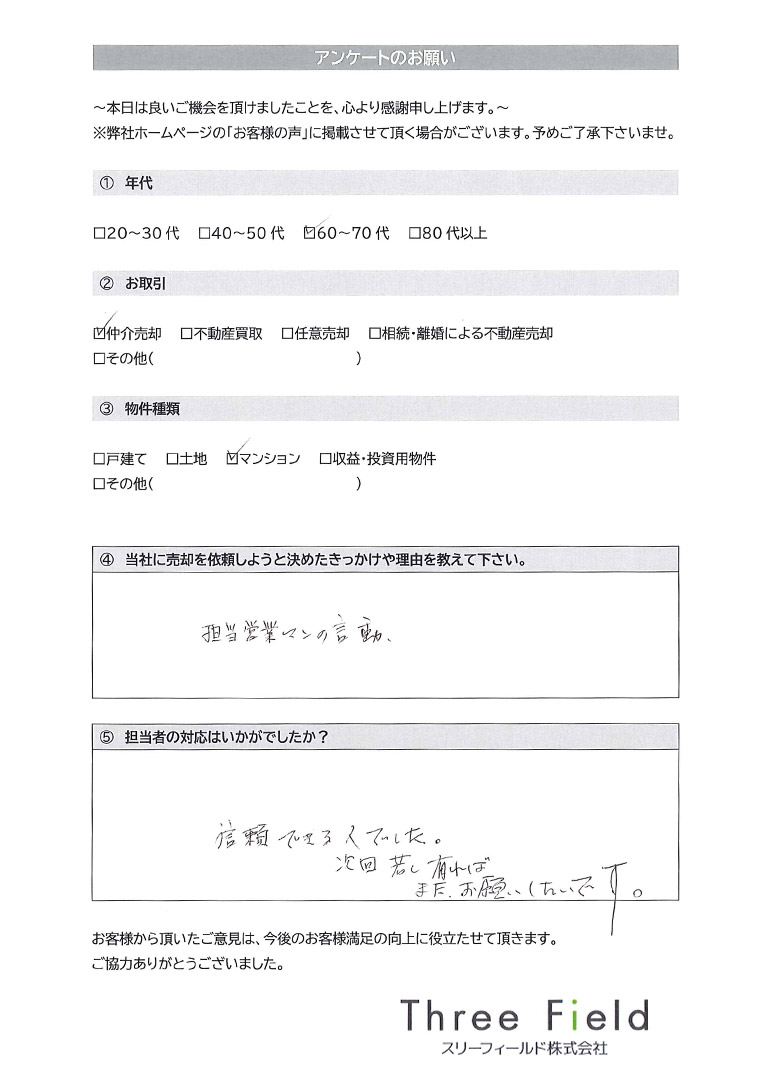 アンケートのお願い
～本日は良いご機会を頂けましたことを、心より感謝申し上げます。～
※弊社ホームページの「お客様の声」に掲載させて頂く場合がございます。予めご了承下さいませ。
① 年代
□20～30 代 □40～50 代 ☑60～70 代 □80 代以上
② お取引
☑仲介売却 □不動産買取 □任意売却 □相続・離婚による不動産売却
□その他( )
③ 物件種類
□戸建て □土地 ☑マンション □収益・投資用物件
□その他( )
④ 当社に売却を依頼しようと決めたきっかけや理由を教えて下さい。
担当営業マンの言動、
⑤ 担当者の対応はいかがでしたか？
信頼できる人でした。
次回若し有れば
また、お願いしたいです。
お客様から頂いたご意見は、今後のお客様満足の向上に役立たせて頂きます。
ご協力ありがとうございました。
Three Field
スリーフィールド株式会社